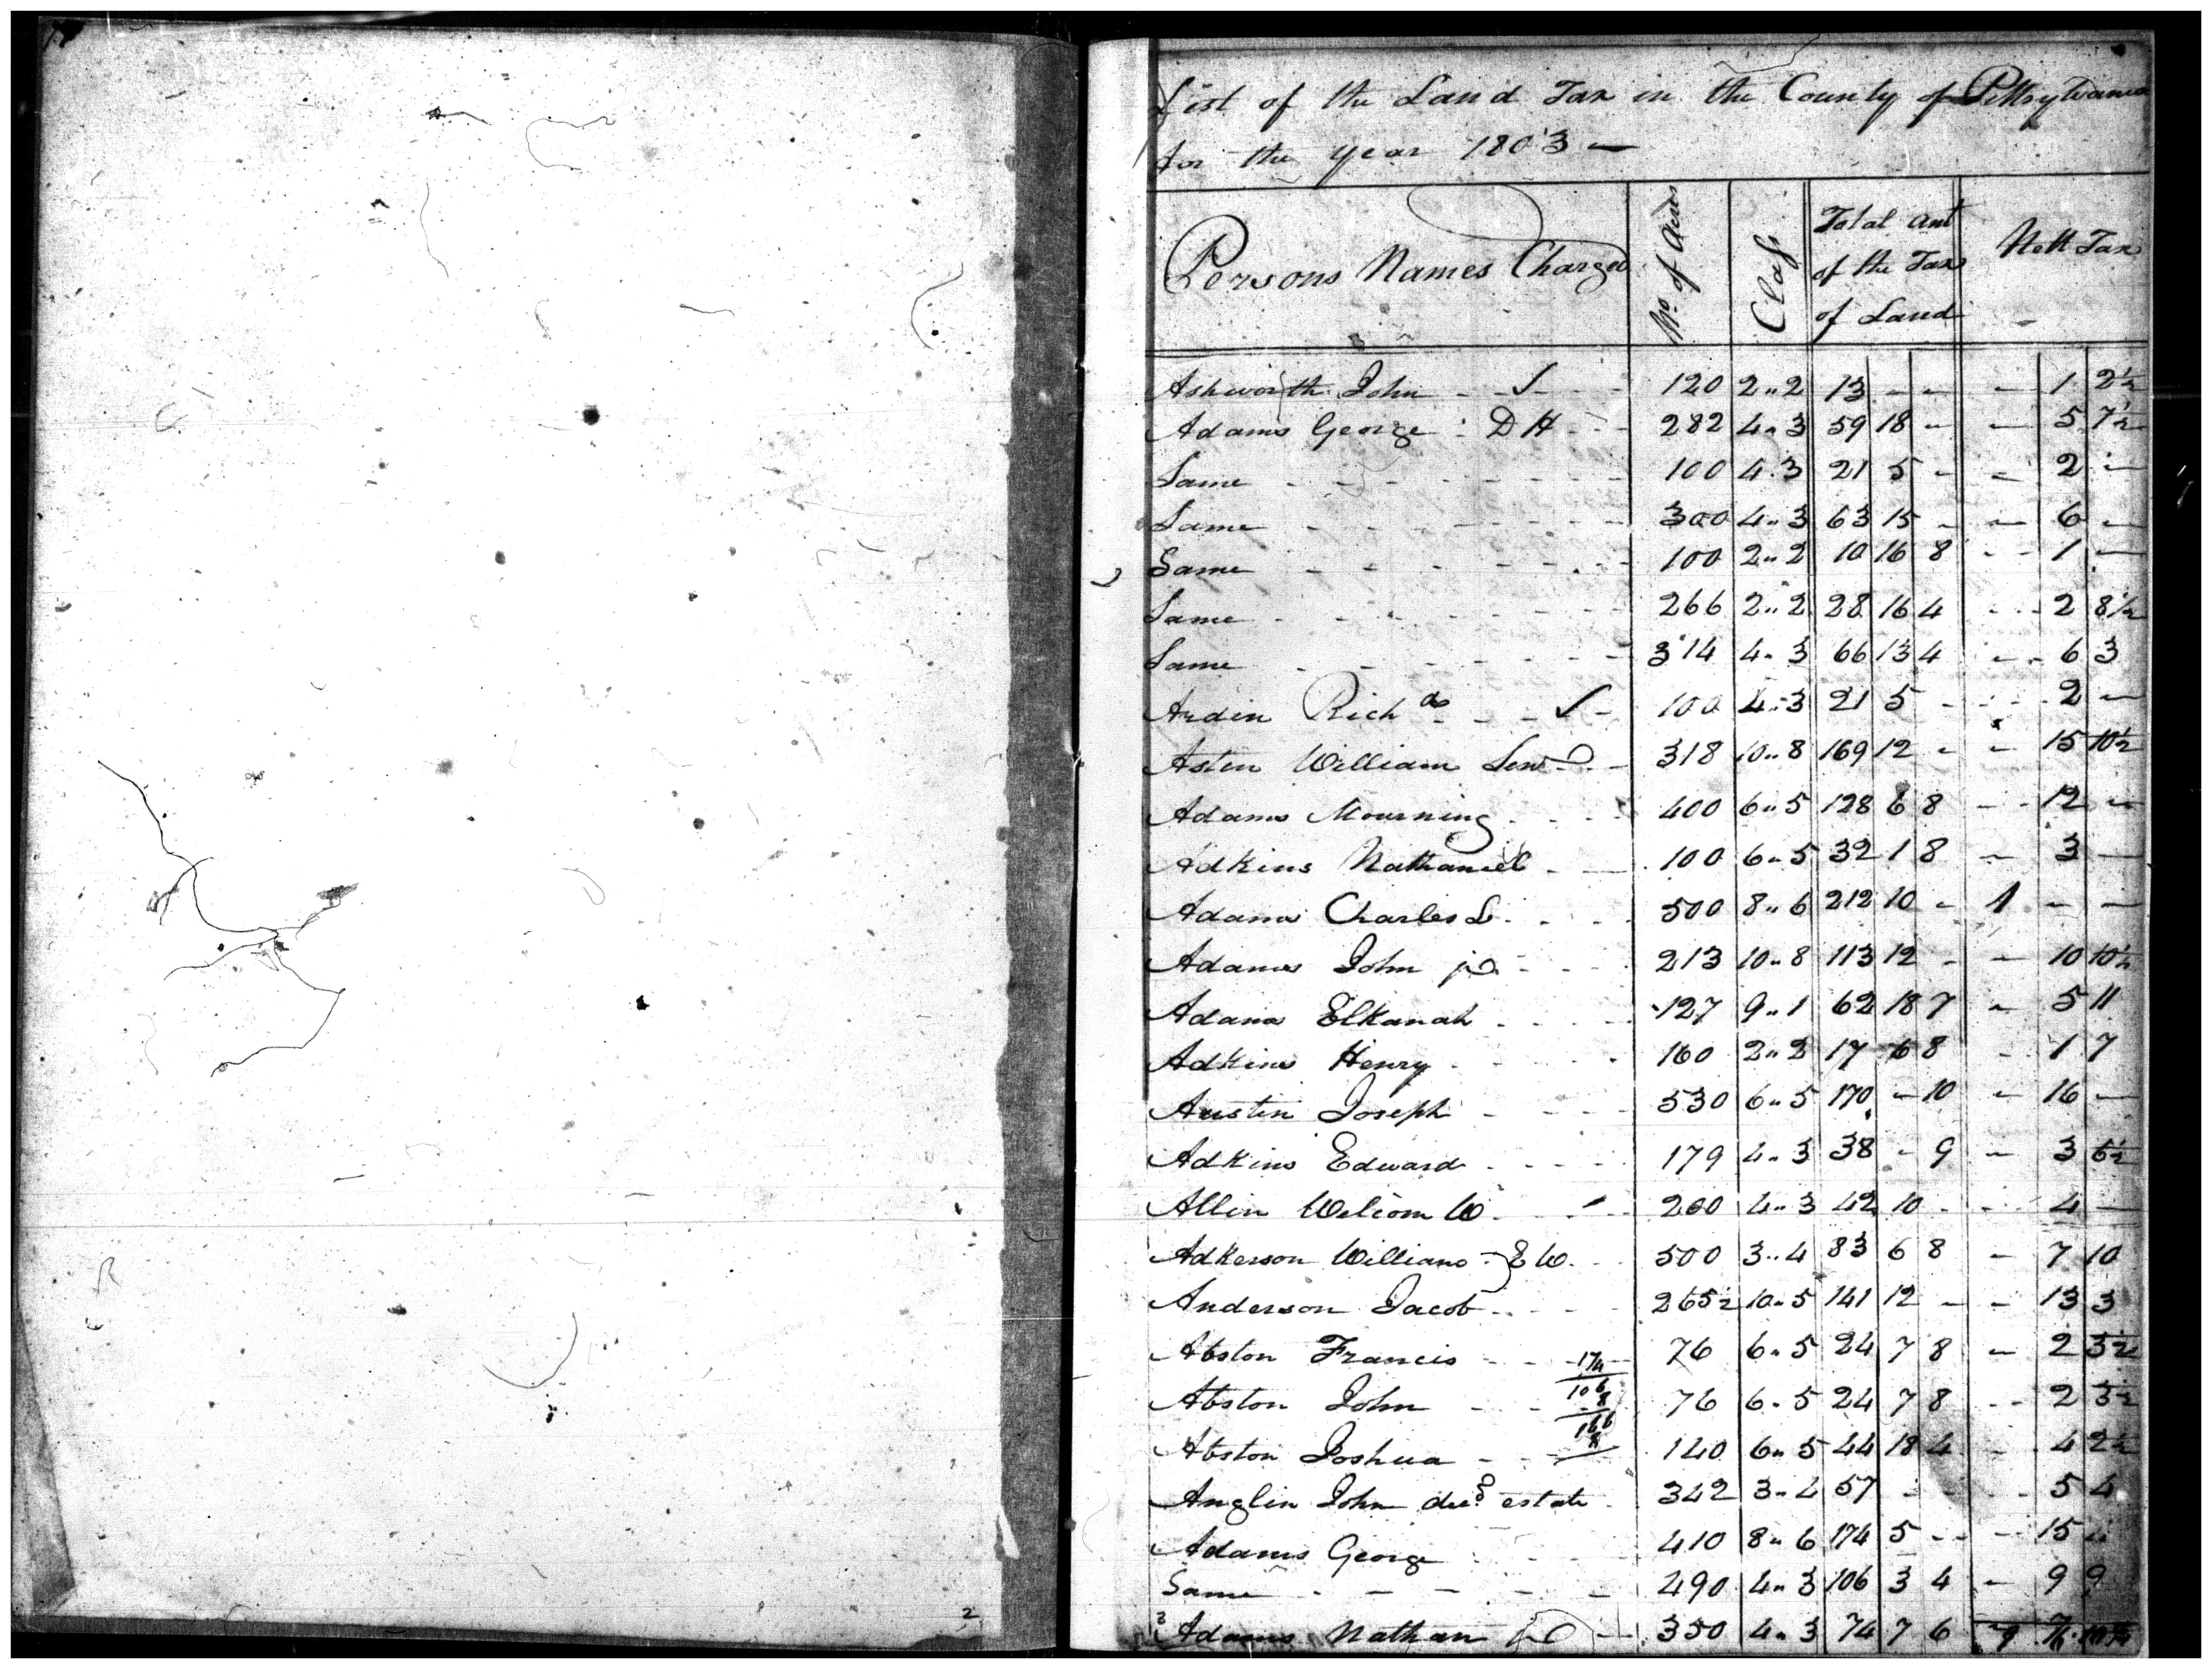 2
List of the Land Tax in the County of Pittsylvania
for the year 1803 —
Persons Names Charged | No. of Acres | Class | Total amt of the Tax of Land | Nett Tax
Ashworth John | 120 | 2..2 | 13 - - | - 1 2½
Adams George DH | 282 | 4..3 | 59 18 - | - 5 7½
Same | 100 | 4.3 | 21 5 - | - 2 -
Same | 300 | 4..3 | 63 15 - | - 6 -
Same | 100 | 2..2 | 10 16 8 | - 1 -
Same | 266 | 2..2 | 28 16 4 | - 2 8½
Same | 314 | 4.3 | 66 13 4 | - 6 3
Ardin Richd | 100 | 4..3 | 21 5 - | - 2 -
Asten William Senr | 318 | 10..8 | 169 12 - | - 15 10½
Adams Mourning | 400 | 6..5 | 128 6 8 | - 12 -
Adkins Nathaniel | 100 | 6..5 | 32 1 8 | - 3 -
Adams Charles L | 500 | 8..6 | 212 10 - | 1 - -
Adams John jr | 213 | 10..8 | 113 12 - | - 10 10½
Adams Elkanah | 127 | 9..1 | 62 18 7 | - 5 11
Adkins Henry | 160 | 2..2 | 17 6 8 | - 1 7
Austin Joseph | 530 | 6..5 | 170 - 10 | - 16 -
Adkins Edward | 179 | 4..3 | 38 - 9 | - 3
Allin Welcom W | 200 | 4..3 | 42 10 - | - 4 -
Adkerson William EW | 500 | 3..4 | 83 6 8 | - 7 10
Anderson Jacob | 265½ | 10..5 | 141 12 - | - 13 3
Abston Francis | 76 | 6..5 | 24 7 8 | - 2 3½
Abston John | 76 | 6.5 | 24 7 8 | - 2 3½
Abston Joshua | 140 | 6..5 | 44 18 4 | - 4 2½
Anglin John decd estate | 342 | 3..4 | 57 - - | - 5 4
Adams George | 410 | 8..6 | 174 5 - | - 15
Same | 490 | 4..3 | 106 3 4 | - 9 9
Adams Nathan | 350 | 4..3 | 74 7 6